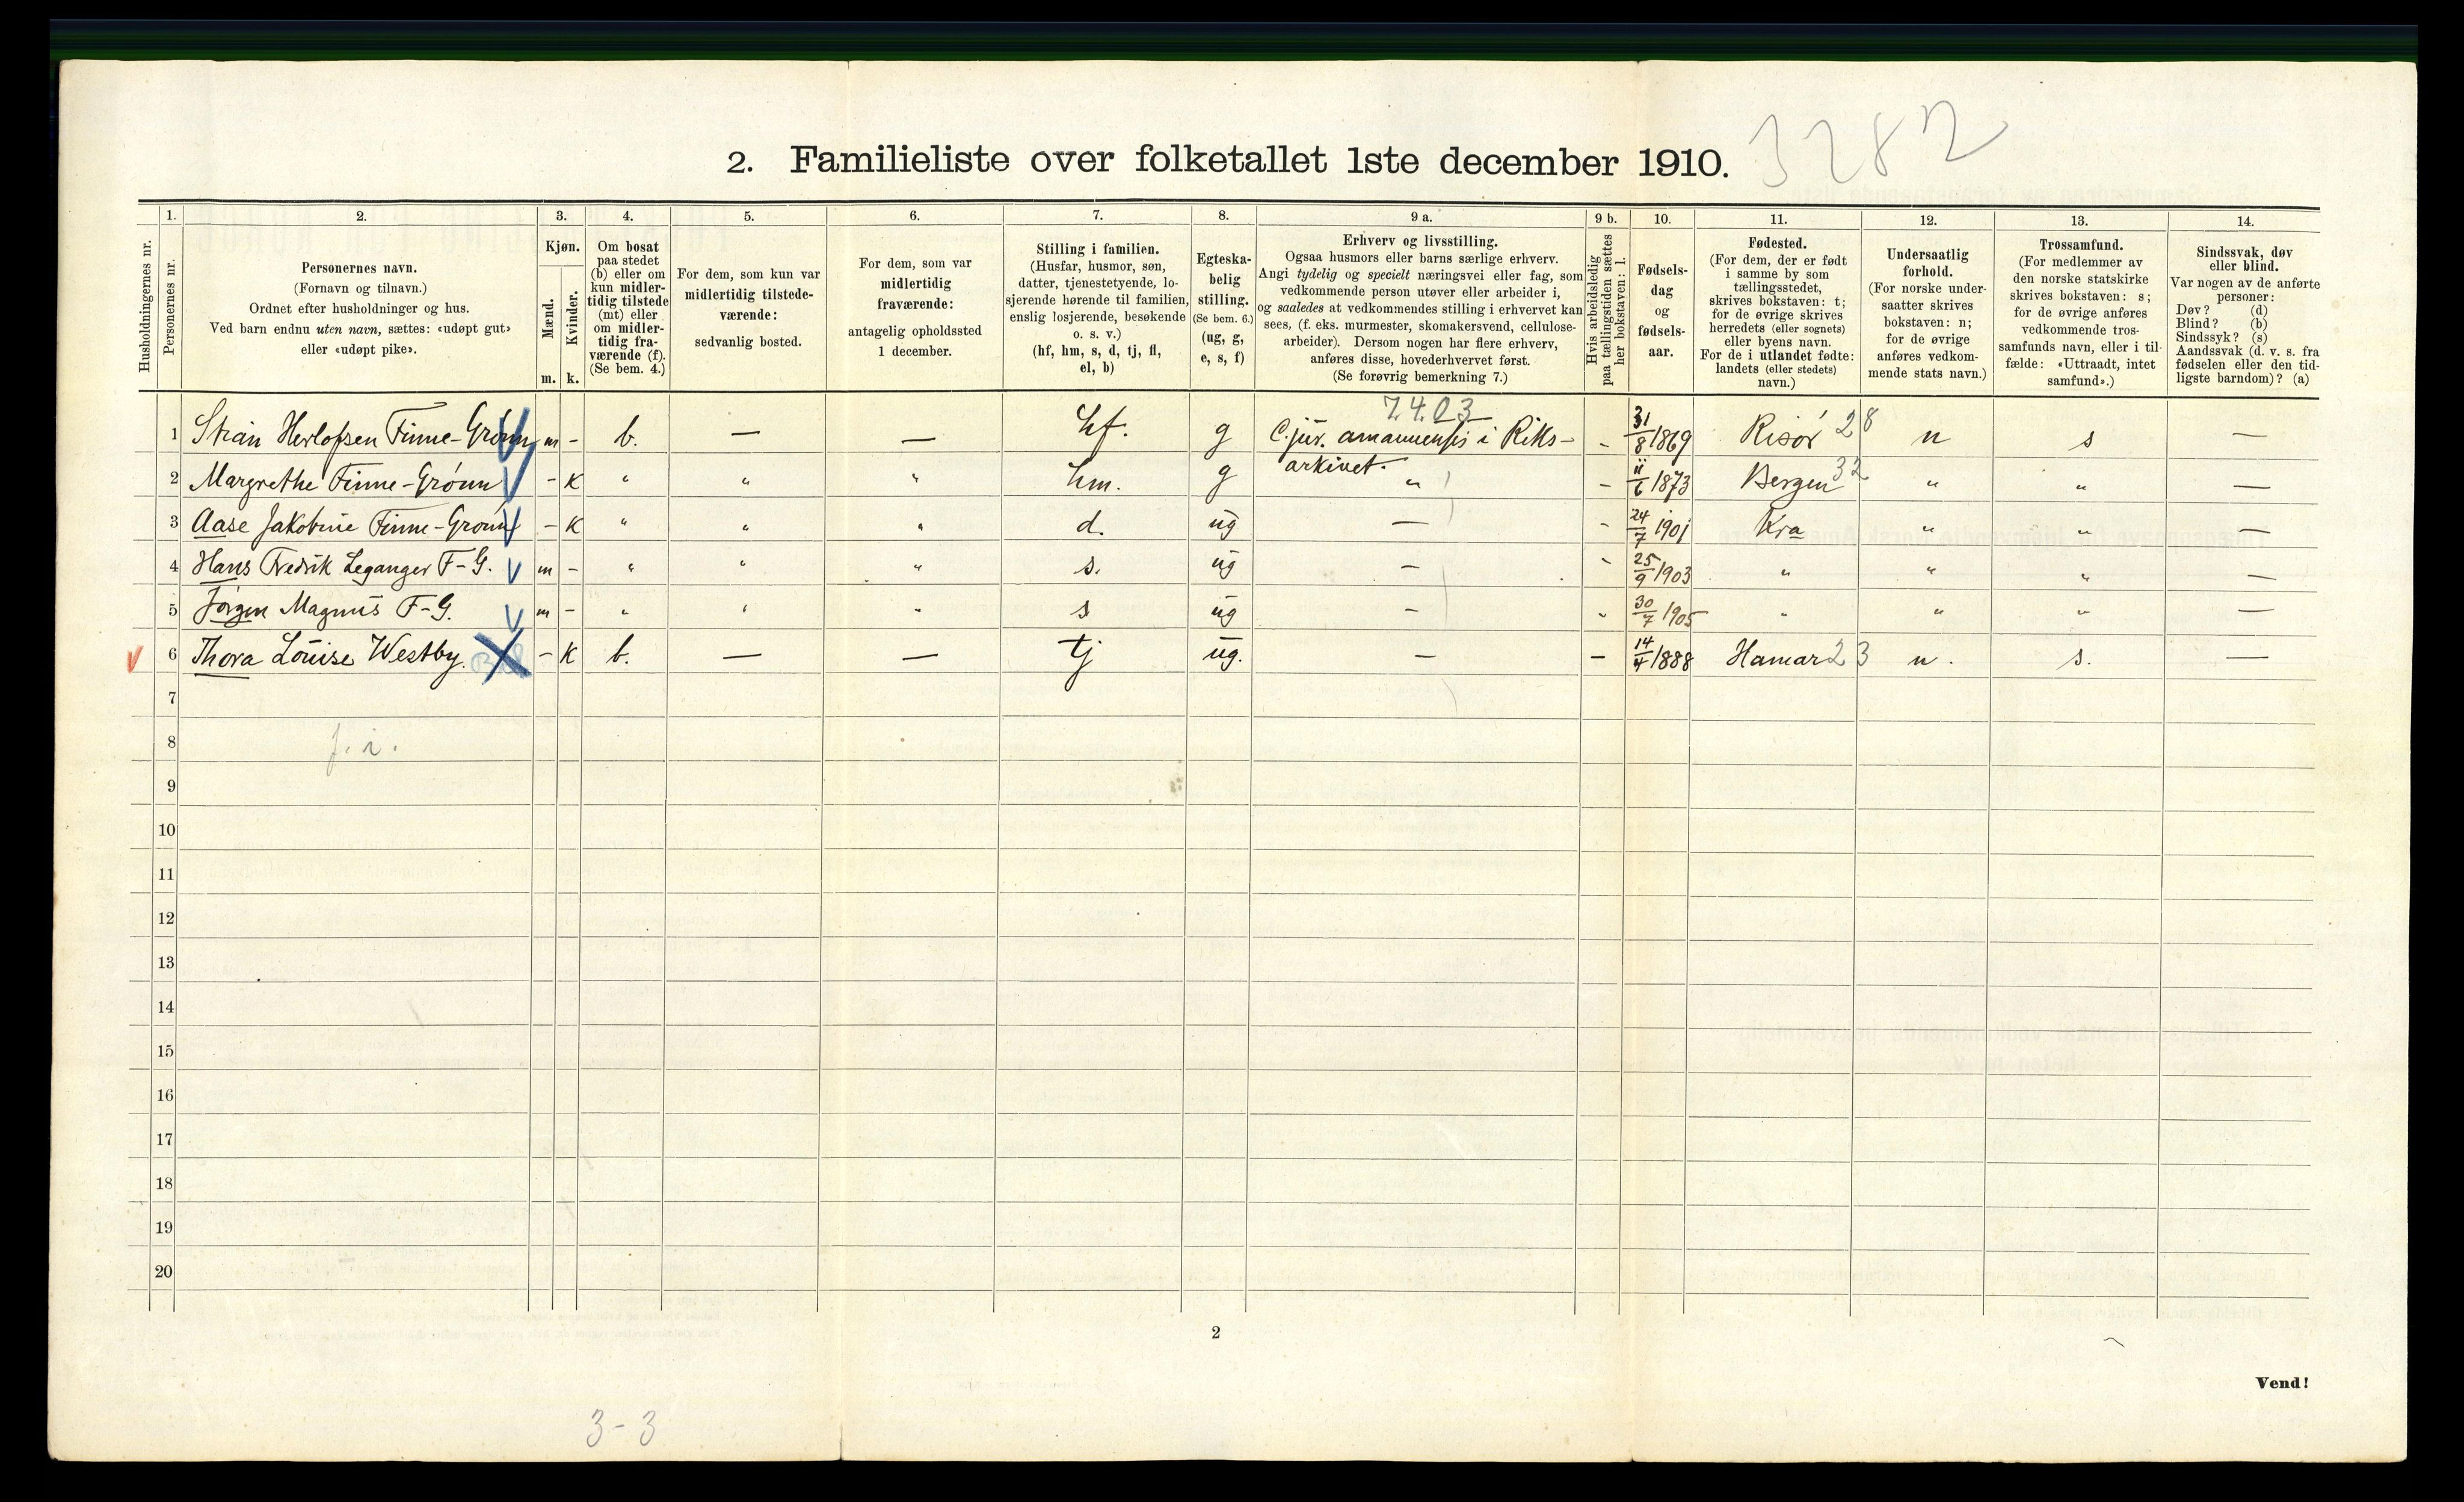 3282
2. Familieliste over folketallet 1ste december 1910.
Husholdningernes nr.
1.
Personernes nr.
2.
Personernes navn.
(Fornavn og tilnavn.)
Ordnet efter husholdninger og hus.
Ved barn endnu uten navn, sættes: «udøpt gut»
eller «udøpt pike».
3.
Kjøn.
Mænd.
Kvinder.
m. k.
4.
Om bosat
paa stedet
(b) eller om
kun midler-
tidig tilstede
(mt) eller
om midler-
tidig fra-
værende (f).
(Se bem. 4.)
5.
For dem, som kun var
midlertidig tilstede-
værende:
sedvanlig bosted.
6.
For dem, som var
midlertidig
fraværende:
antagelig opholdssted
1 december.
7.
Stilling i familien.
(Husfar, husmor, søn,
datter, tjenestetyende, lo-
sjerende hørende til familien,
enslig losjerende, besøkende
o. s. v.)
(hf, hm, s, d, tj, fl,
el, b)
8.
Egteska-
belig
stilling.
(Se bem. 6.)
(ug, g,
e, s, f)
9 a.
Erhverv og livsstilling.
Ogsaa husmors eller barns særlige erhverv.
Angi tydelig og specielt næringsvei eller fag, som
vedkommende person utøver eller arbeider i,
og saaledes at vedkommendes stilling i erhvervet kan
sees, (f. eks. murmester, skomakersvend, cellulose-
arbeider). Dersom nogen har flere erhverv,
anføres disse, hovederhvervet først.
(Se forøvrig bemerkning 7.)
9 b.
Hvis arbeidsledig
paa tællingstiden sættes
her bokstaven: l.
10.
Fødsels-
dag
og
fødsels-
aar.
11.
Fødested.
(For dem, der er født
i samme by som
tællingsstedet,
skrives bokstaven: t;
for de øvrige skrives
herredets (eller sognets)
eller byens navn.
For de i utlandet fødte:
landets (eller stedets)
navn.)
12.
Undersaatlig
forhold.
(For norske under-
saatter skrives
bokstaven: n;
for de øvrige
anføres vedkom-
mende stats navn.)
13.
Trossamfund.
(For medlemmer av
den norske statskirke
skrives bokstaven: s;
for de øvrige anføres
vedkommende tros-
samfunds navn, eller i til-
fælde: «Uttraadt, intet
samfund».)
14.
Sindssvak, døv
eller blind.
Var nogen av de anførte
personer:
Døv? (d)
Blind? (b)
Sindssyk? (s)
Aandssvak (d. v. s. fra
fødselen eller den tid-
ligste barndom)? (a)
7.4.03
1 Strain Herlofsen Finne-Grønn m - b. — — hf. g C. jur. amanuensis i Riks- - 31/8 1869 Risør 28 n s —
arkivet.
2 Margrethe Finne-Grønn - K " " " hm. g " - 11/6 1873 Bergen 32 " " —
3 Aase Jakobine Finne-Grønn - K " " " d. ug — - 24/7 1901 Kra " " —
4 Hans Fredrik Leganger F-G. m - " " " s. ug — - 25/9 1903 " " " —
5 Jørgen Magnus F-G. m - " " " s ug — - 30/7 1905 " " " —
V 6 Thora Louise Westby. - K b. — — tj ug. — - 14/4 1888 Hamar 23 n. s. —
7
8 f. i.
9
10
11
12
13
14
15
16
17
18
19
20
2
Vend!
3-3